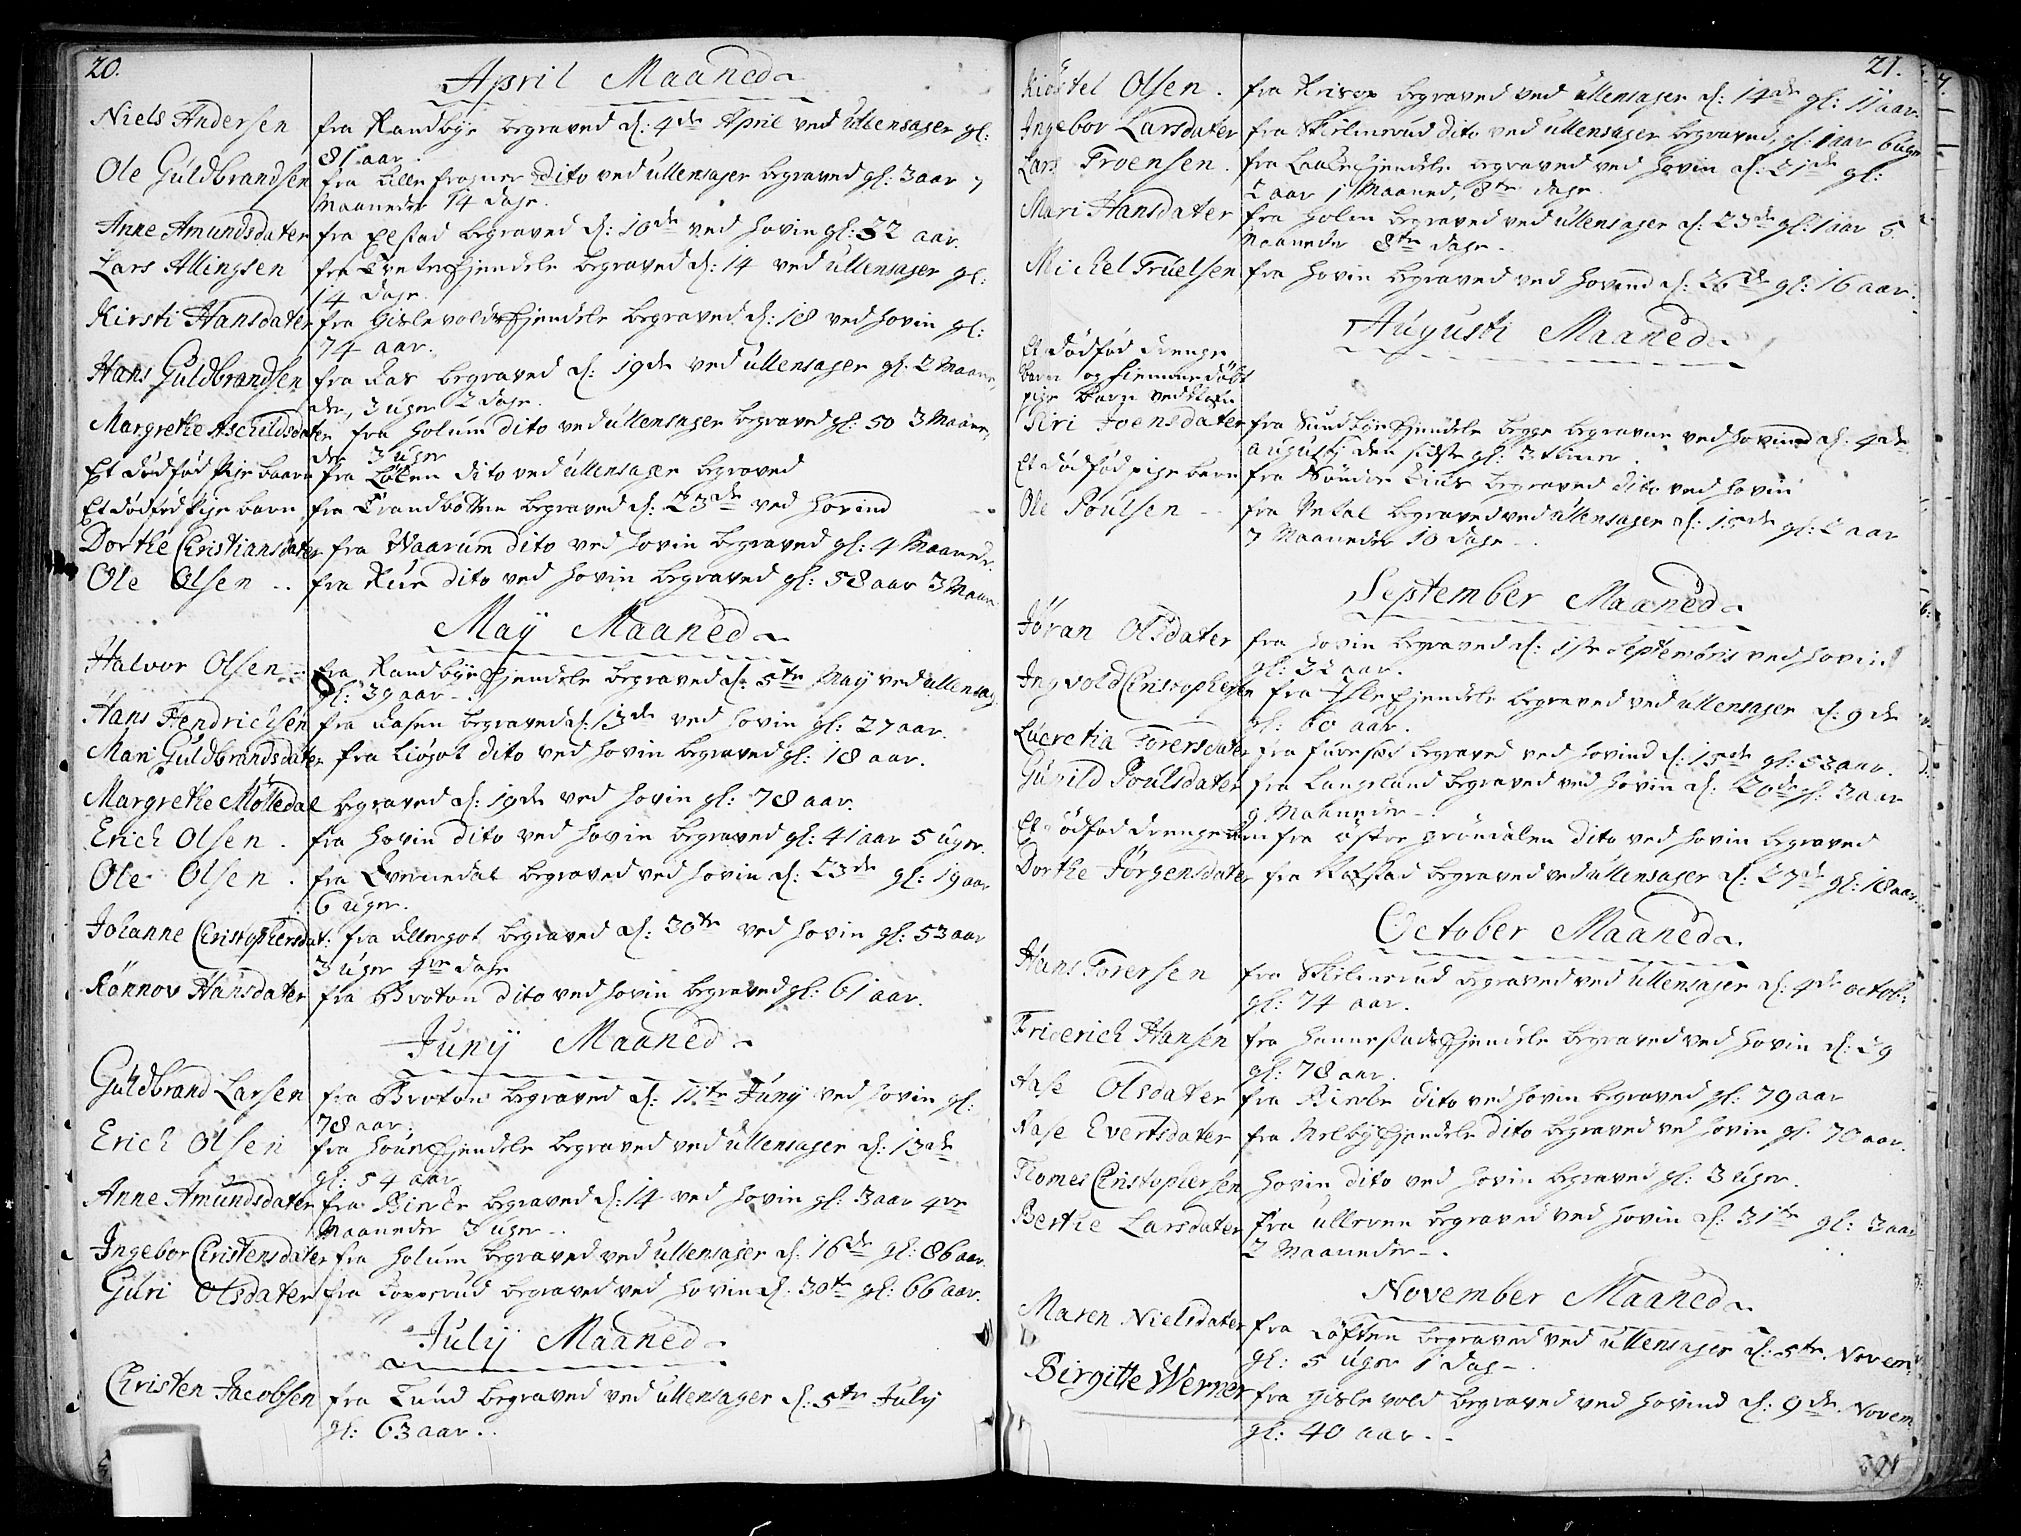 20.
April Maaned
Niels Andersen fra Randbye begraved d: 4de April ved Ullensager gl:
81 aar.
Ole Guldbrandsen fra Lille frogner dito ved Ullensager begraved gl: 3 aar 7
Maaneder 14 dage.
Anne Amundsdater fra Elstad begraved d: 10de ved Hovin gl: 52 aar.
Lars Allingsen fra Tveter Ejendele begraved d: 14 ved Ullensager gl:
14 dage.
Kirsti Hansdater fra Gislevolds Ejendele begraved d: 18 ved Hovin gl:
74 aar.
Hans Guldbrandsen fra Aas begraved d: 19de ved Ullensager gl: 2 Maane-
der, 3 uger 2 dage.
Margrethe Aschildsdater fra Holum dito ved Ullensager begraved gl: 50 3 Maane-
der 3 uger
Et dødfød Pige baarn fra Løken dito ved Ullensager begraved
Et dødfød Pige barn fra Trandbotten begraved d: 23de ved Hovind
Dorthe Christiansdater fra Waarum dito ved Hovin begraved gl: 4 Maaneder.
Ole Olsen .. fra Rue dito ved Hovin begraved gl: 58 aar 3 Maan
May Maaned
Halvor Olsen .. fra Randbye Ejendele begraved d: 5te May ved Ullensag
gl: 39 aar -
Hans Hendrichsen fra Aasen begraved d: 13de ved Hovin gl: 27 aar.
Mari Guldbrandsdater fra Liøgot dito ved Hovin begraved gl: 18 aar.
Margrethe Mølledal begraved d: 19de ved Hovin gl: 78 aar.
Erich Olsen . fra Hovin dito ved Hovin begraved gl: 41 aar 5 uger.
Ole Olsen . fra Qvernedal begraved ved Hovin d: 23de gl: 19 aar
6 uger.
Johanne Christophersdat: fra Allergot begraved d: 30te ved Hovin gl: 53 aar
3 uger 4re dage
Rønnov Hansdater fra Broton dito ved Hovin begraved gl: 61 aar.
Juny Maaned
Guldbrand Larsen fra Broton begraved d: 11te Juny ved Hovin gl:
78 aar.
Erich Olsen fra Houn Ejendele begraved ved Ullensager d: 13de
gl: 54 aar
Anne Amundsdater fra Bierke begraved d: 14 ved Hovin gl: 3 aar 4re
Maaneder 3 uger -.
Ingebor Christensdater fra Holum begraved ved Ullensager d: 16de gl: 86 aar.
Guri Olsdater fra Topperud begraved ved Hovin d: 30te gl: 66 aar.
July Maaned
Christen Jacobsen fra Lund begraved ved Ullensager d: 5te July
gl: 63 aar..
21.
Kiøstel Olsen . fra Krisge begraved ved Ullensager d: 14de gl: 11 aar.
Ingebor Larsdater fra Skielmerud dito ved Ullensager begraved, gl: 1 aar 6 uger
Lars Troensen . fra Bakke Ejendele begraved ved Hovin d: 21de gl:
2 aar 1 Maaned, 8te dage.
Mari Hansdater fra Holm begraved ved Ullensager d: 23de gl: 1 aar 5
Maaneder 8te dage -
Michel Truelsen fra Hovin begraved ved Hovind d: 26de gl: 16 aar.
Augusti Maaned
Et dødfød drenge
barn og hiemmedøbt
pige barn ved Navn
Siri Joensdater fra Sundbye Ejendele begge begravne ved Hovind d: 4de
Augusty den sidste gl: 3 timer.
Et dødfød pige barn fra Søndre Lius begraved dito ved Hovin
Ole Poulsen - - fra Nekol begraved ved Ullensager d: 15de gl: 2 aar
7 Maaneder 10 dage -.
September Maaned
Jøran Olsdater fra Hovin begraved d: 1ste Septembris ved Hovin
gl: 32 aar.
Ingvold Christophersen fra Hsle Ejendele begraved ved Ullensager d: 9de
gl: 60 aar.
Lucretia Torersdater fra Furuset begraved ved Hovind d: 15de gl: 53 aar.
Gunild Poulsdater fra Langeland begraved ved Hovin d: 20de gl: 3 aar
9 Maaneder -.
Et dødfød drenge barn fra Østre Grøndalen dito ved Hovin begraved
Dorthe Jørgensdater fra Rafstad begraved ved Ullensager d: 27de gl: 18 aar.
October Maaned
Hans Torersen fra Skielmerud begraved ved Ullensager d: 4de octob:
gl: 74 aar.
Friderich Hansen fra Hennestads Ejendele begraved ved Hovin d: 29
gl: 78 aar.
Aase Olsdater fra Bierke dito ved Hovin begraved gl: 79 aar
Aase Evertsdater fra Melbye Ejendele dito begraved ved Hovin gl: 70 aar.
Thomes Christophersen Hovin dito ved Hovin begraved gl: 3 uger.
Berthe Larsdater fra Ulleren begraved ved Hovin d: 31te gl: 3 aar
2 Maaneder -.
November Maaned
Maren Nielsdater fra Løfsen begraved ved Ullensager d: 5te Novem:
gl: 5 uger 1 dag -.
Birgitte Werner fra Gislevold begraved ved Hovind d: 9de Novem
gl: 40 aar - -